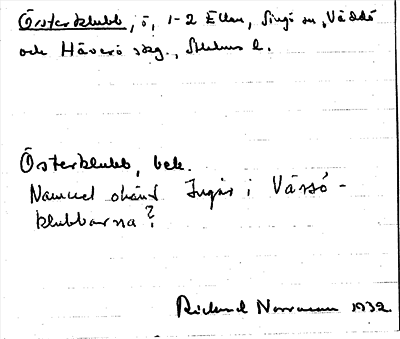 Österklubb, ö, 1-2 Ellan, Singö sn, Väddö
och Häverö skg., Sthlms l.
Österklubb, bek.
Namnet okänt Ingår i Värsö-
klubbarna?
Rickard Norrman 1932